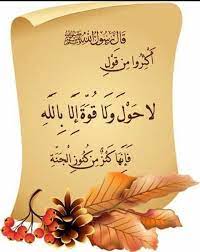 قَالَ رَسُولُ اللهِ ﷺ
أَكْثِرُوا مِنْ قَوْلِ
لَا حَوْلَ وَلَا قُوَّةَ إِلَّا بِاللَّهِ
فَإِنَّهَا كَنْزٌ مِنْ كُنُوزِ الْجَنَّةِ